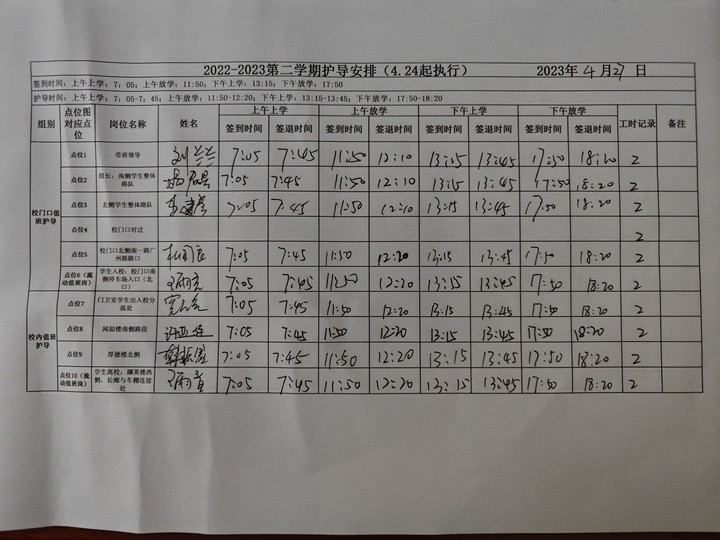 2022-2023第二学期护导安排（4.24起执行） 2023年 4 月 27 日
签到时间：上午上学：7：05；上午放学：11:50；下午上学：13:15；下午放学：17:50
护导时间：上午上学：7：05-7：45；上午放学：11:50-12:20；下午上学：13:15-13:45；下午放学：17:50-18:20
组别 点位图对应点位 岗位名称 姓名 上午上学 上午放学 下午上学 下午放学 工时记录 备注
签到时间 签退时间 签到时间 签退时间 签到时间 签退时间 签到时间 签退时间
校门口值班护导
点位1 带班领导 刘兰兰 7:05 7:45 11:50 12:10 13:15 13:45 17:50 18:20 2
点位2 组长：南侧学生整体路队 7:05 7:45 11:50 12:10 13:15 13:45 17:50 18:20 2
点位3 北侧学生整体路队 7:05 7:45 11:50 12:10 13:15 13:45 17:50 18:20 2
点位4 校门口对过 2
点位5 校门口北侧南一路广州路路口 7:05 7:45 11:50 12:20 13:15 13:45 17:50 18:20 2
点位6（流动值班岗） 学生入校：校门口南侧停车场入口（北口） 7:05 7:45 11:50 12:20 13:15 13:45 17:50 18:20 2
校内值班护导
点位7 门卫室学生出入校分流处 7:05 7:45 11:50 12:20 13:15 13:45 17:50 18:20 2
点位8 闻韶楼南侧路段 7:05 7:45 11:50 12:20 13:15 13:45 17:50 18:20 2
点位9 厚德楼北侧 7:05 7:45 11:50 12:20 13:15 13:45 17:50 18:20 2
点位10（流动值班岗） 学生离校：撷英楼西侧，长廊与车棚连接处 7:05 7:45 11:50 12:20 13:15 13:45 17:50 18:20 2